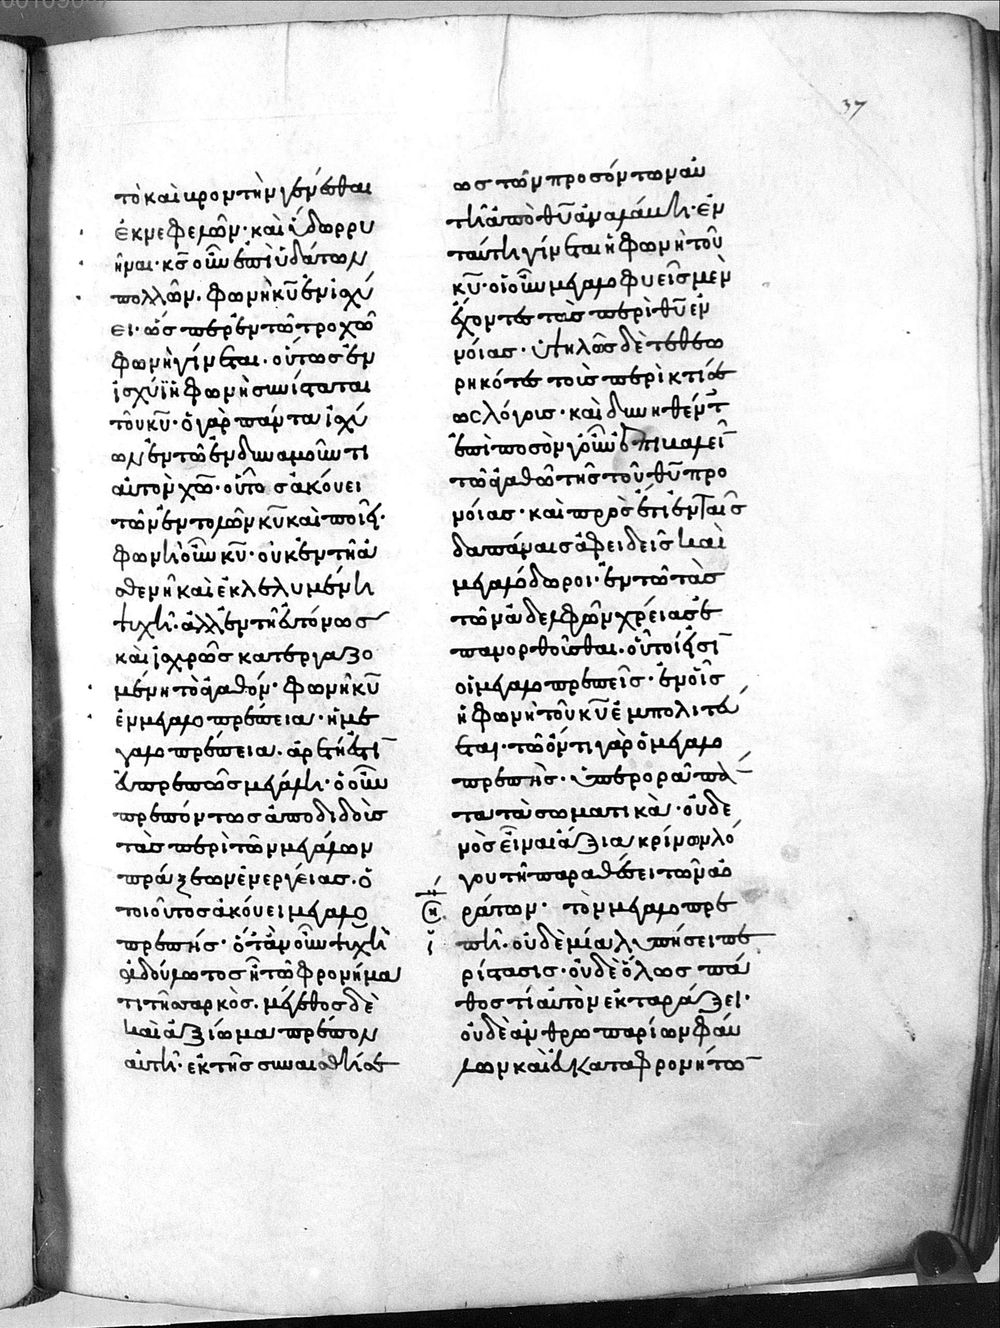 37
τὸ καὶ κρον τὴν γενέσθαι
ἐκ νεφελῶν· καὶ ὕδωρ ρυ
ῆναι· κς οὖν ἐπὶ ὑδάτων
πολλῶν. φωνὴ κυ ἐν ἰσχύ
ει· ὥσπερ ἐν τῶ τροχῶ
φωνὴ γίνεται· οὕτως ἐν
ἰσχύϊ ἡ φωνὴ συνίσταται
τοῦ κυ· ὁ γὰρ πάντα ἰσχύ
ων ἐν τῶ ἐνδυναμοῦντι
αὐτὸν χω· οὗτος ἀκούει
τῶν ἐντολῶν κυ καὶ ποιεῖ·
φωνὴ οὖν κυ· οὐκ ἐν τῆ ἀ
σθενῆ καὶ ἐκλελυμένη
ψυχῆ· ἀλλ' ἐν τῆ εὐτόνως
καὶ ἰσχυρῶς κατεργαζο
μένη τὸ ἀγαθόν· φωνὴ κυ
ἐν μεγαλοπρεπεία· ἡ με
γαλοπρέπεια· ἀρετή ἐστι
ἡ πρεπωδῶς μεγάλη· ὁ οὖν
πρεπόντως ἀποδιδοὺς
τὰς περὶ τῶν μεγάλων
πράξεων ἐνεργείας. ὁ
τοιοῦτος ἀκούει μεγαλο
πρεπής· ὅταν οὖν ψυχὴ
ἀδούλωτος ἦ τῶ φρονήμα
τι τῆς σαρκός. μέγεθος δὲ
καὶ ἀξίωμα πρέπον
αὐτῆ· ἐκ τῆς συναισθήσε
ως τῶν προσόντων αὐ
τῆ ἀπὸ θυ ἀναλάβη· ἐν
ταύτη γίνεται ἡ φωνὴ τοῦ
κυ· οἱ οὖν μεγαλοφυεῖς μὲν
ἔχοντες τὰς περὶ θυ ἐν
νοίας· ὑψηλῶς δὲ τεθεω
ρηκότες τοὺς περὶ κτίσε
ως λόγους· καὶ δυνηθέντ
τῶ ἀγαθῶ τῆς τοῦ θυ προ
νοίας· καὶ πρὸς ἔτι ἐν ταῖς
δαπάναις ἀφειδεῖς καὶ
μεγαλόδωροι· ἐν τῶ τὰς
τῶν ἀδελφῶν χρείας ἐ
πανορθοῦσθαι· οὗτοί εἰσι
οἱ μεγαλοπρεπεῖς· ἐν οἷς
ἡ φωνὴ τοῦ κυ ἐμπολιτεύ
εται· τῶ ὄντι γὰρ ὁ μεγαλο
πρεπὴς· ὑπερορᾶ πάν
τα τὰ σωματικὰ· οὐδε
νὸς εἶναι ἄξια κρίνων λό
γου τῆ παραθέσει τῶν ἀο
ράτων· τὸν μεγαλοπρε
πῆ· οὐδὲ μία λυπήσει πε
ρίστασις· οὐδὲ ὅλως πά
θος τὶ αὐτὸν ἐκταράξει·
οὐδὲ ἀνθρωπαρίων φαύ
λων καὶ εὐκαταφρονήτω